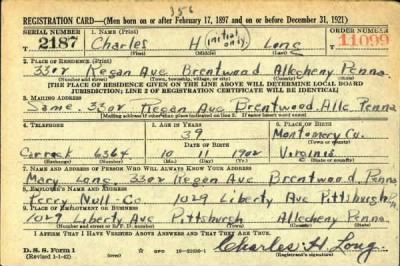 356
REGISTRATION CARD—(Men born on or after February 17, 1897 and on or before December 31, 1921)
SERIAL NUMBER 1. NAME (Print) ORDER NUMBER
2187 Charles H (initial only) Long 11099
(First) (Middle) (Last)
2. PLACE OF RESIDENCE (Print)
3302 Kegan Ave Brentwood Allegheny Penna
(Number and street) (Town, township, village, or city) (County) (State)
[THE PLACE OF RESIDENCE GIVEN ON THE LINE ABOVE WILL DETERMINE LOCAL BOARD
JURISDICTION; LINE 2 OF REGISTRATION CERTIFICATE WILL BE IDENTICAL]
3. MAILING ADDRESS
Same 3302 Kegan Ave Brentwood. Alle. Penna
[Mailing address if other than place indicated on line 2. If same insert word same]
4. TELEPHONE 5. AGE IN YEARS 6. PLACE OF BIRTH
39 Montgomery Co.
DATE OF BIRTH (Town or county)
Carrack 6364 10 11 1902 Virginia
(Exchange) (Number) (Mo.) (Day) (Yr.) (State or country)
7. NAME AND ADDRESS OF PERSON WHO WILL ALWAYS KNOW YOUR ADDRESS
Mary Long 3302 Kegan Ave Brentwood. Penna
8. EMPLOYER'S NAME AND ADDRESS
Perry Null-Co 1029 Liberty Ave Pittsburgh Pa
9. PLACE OF EMPLOYMENT OR BUSINESS
1029 Liberty Ave Pittsburgh Allegheny Penna.
(Number and street or R. F. D. number) (Town) (County) (State)
I AFFIRM THAT I HAVE VERIFIED ABOVE ANSWERS AND THAT THEY ARE TRUE.
D. S. S. Form 1 GPO
(Revised 1-1-42) Charles H Long.
(Registrant's signature)